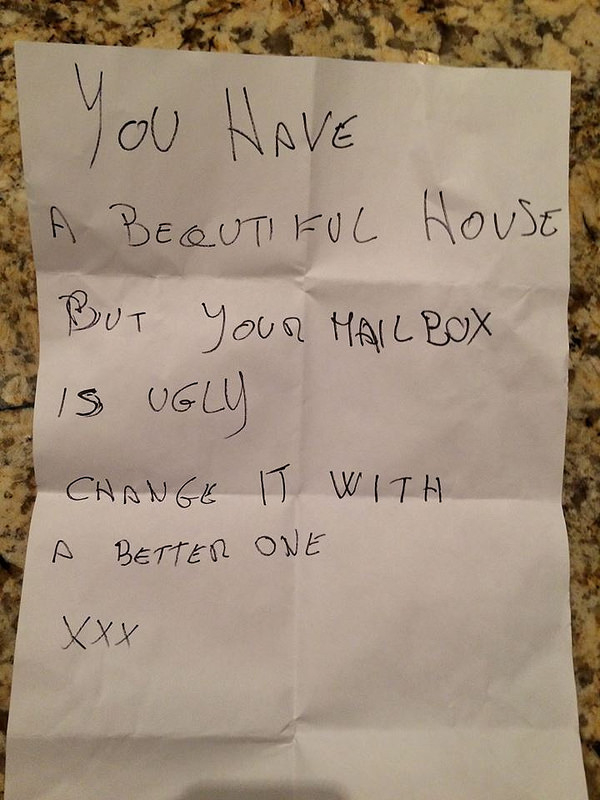 YOU HAVE
A BEAUTIFUL HOUSE
BUT YOUR MAILBOX
IS UGLY
CHANGE IT WITH
A BETTER ONE
XXX